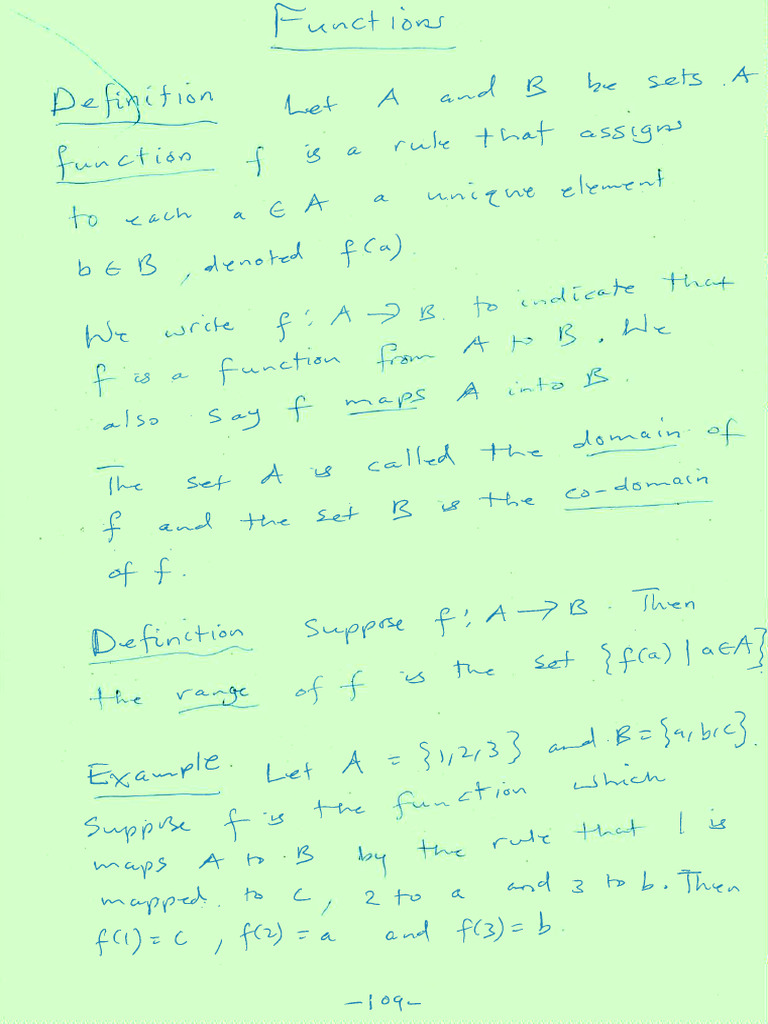 Functions
Definition Let A and B be sets. A
function f is a rule that assigns
to each a ∈ A a unique element
b ∈ B, denoted f(a)
We write f: A → B. to indicate that
f is a function from A to B. We
also say f maps A into B.
The set A is called the domain of
f and the set B is the co-domain
of f.
Definition Suppose f: A → B. Then
the range of f is the set {f(a) | a ∈ A}
Example. Let A = {1,2,3} and B = {a,b,c}.
Suppose f is the function which
maps A to B by the rule that 1 is
mapped to c, 2 to a and 3 to b. Then
f(1) = c, f(2) = a and f(3) = b.
-109-